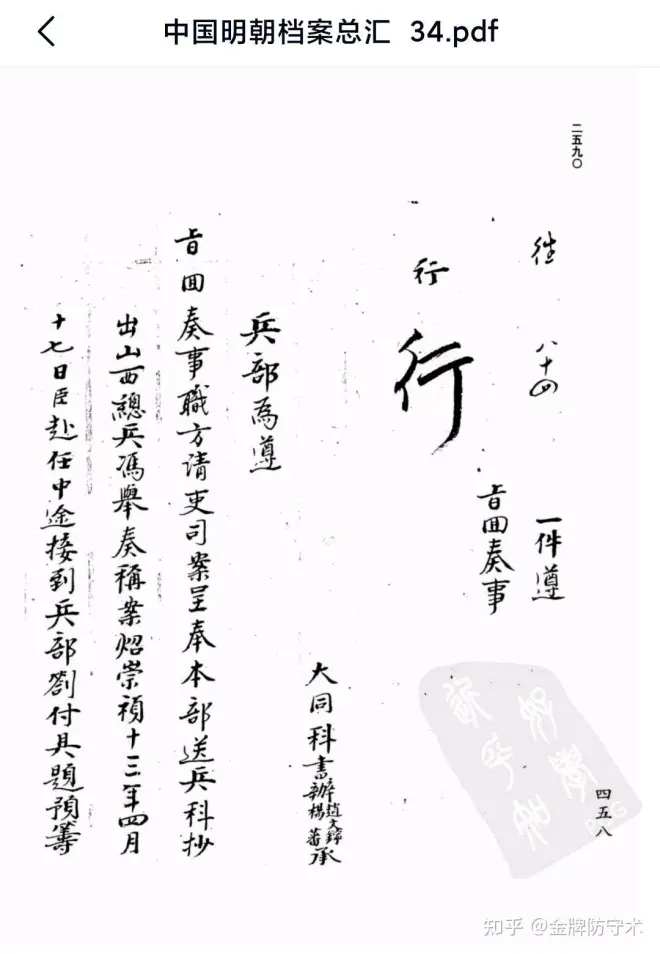 中国明朝档案总汇 34.pdf
二五九〇
往 八十四 一件遵
旨回奏事
行
行
大同科書辦 趙文 楊 承
兵部為遵
旨回奏事職方清吏司案呈奉本部送兵科抄
出山西總兵馮舉奏稱案炤崇禎十三年四月
十七日臣赴任中途接到兵部劄付具題預籌
四五八
知乎 @金牌防守术